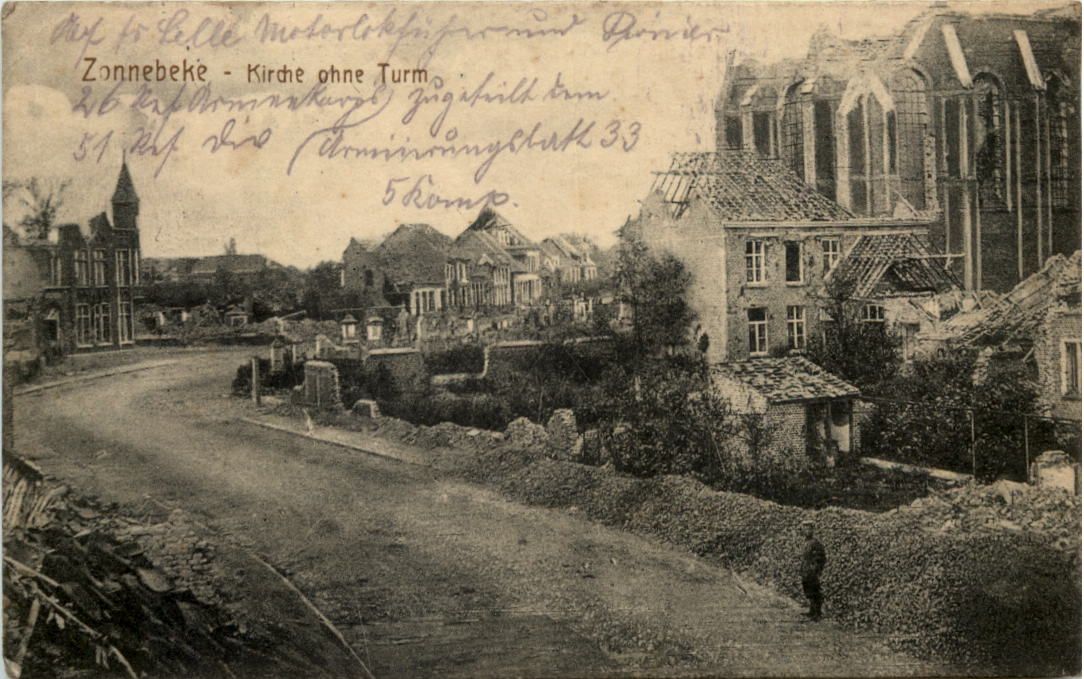 Motorlokführer und Pionier
Zonnebeke - Kirche ohne Turm
26 Res Armeekorps zugeteilt dem
51 Res Div Armierungsbatl 33
5 Komp.